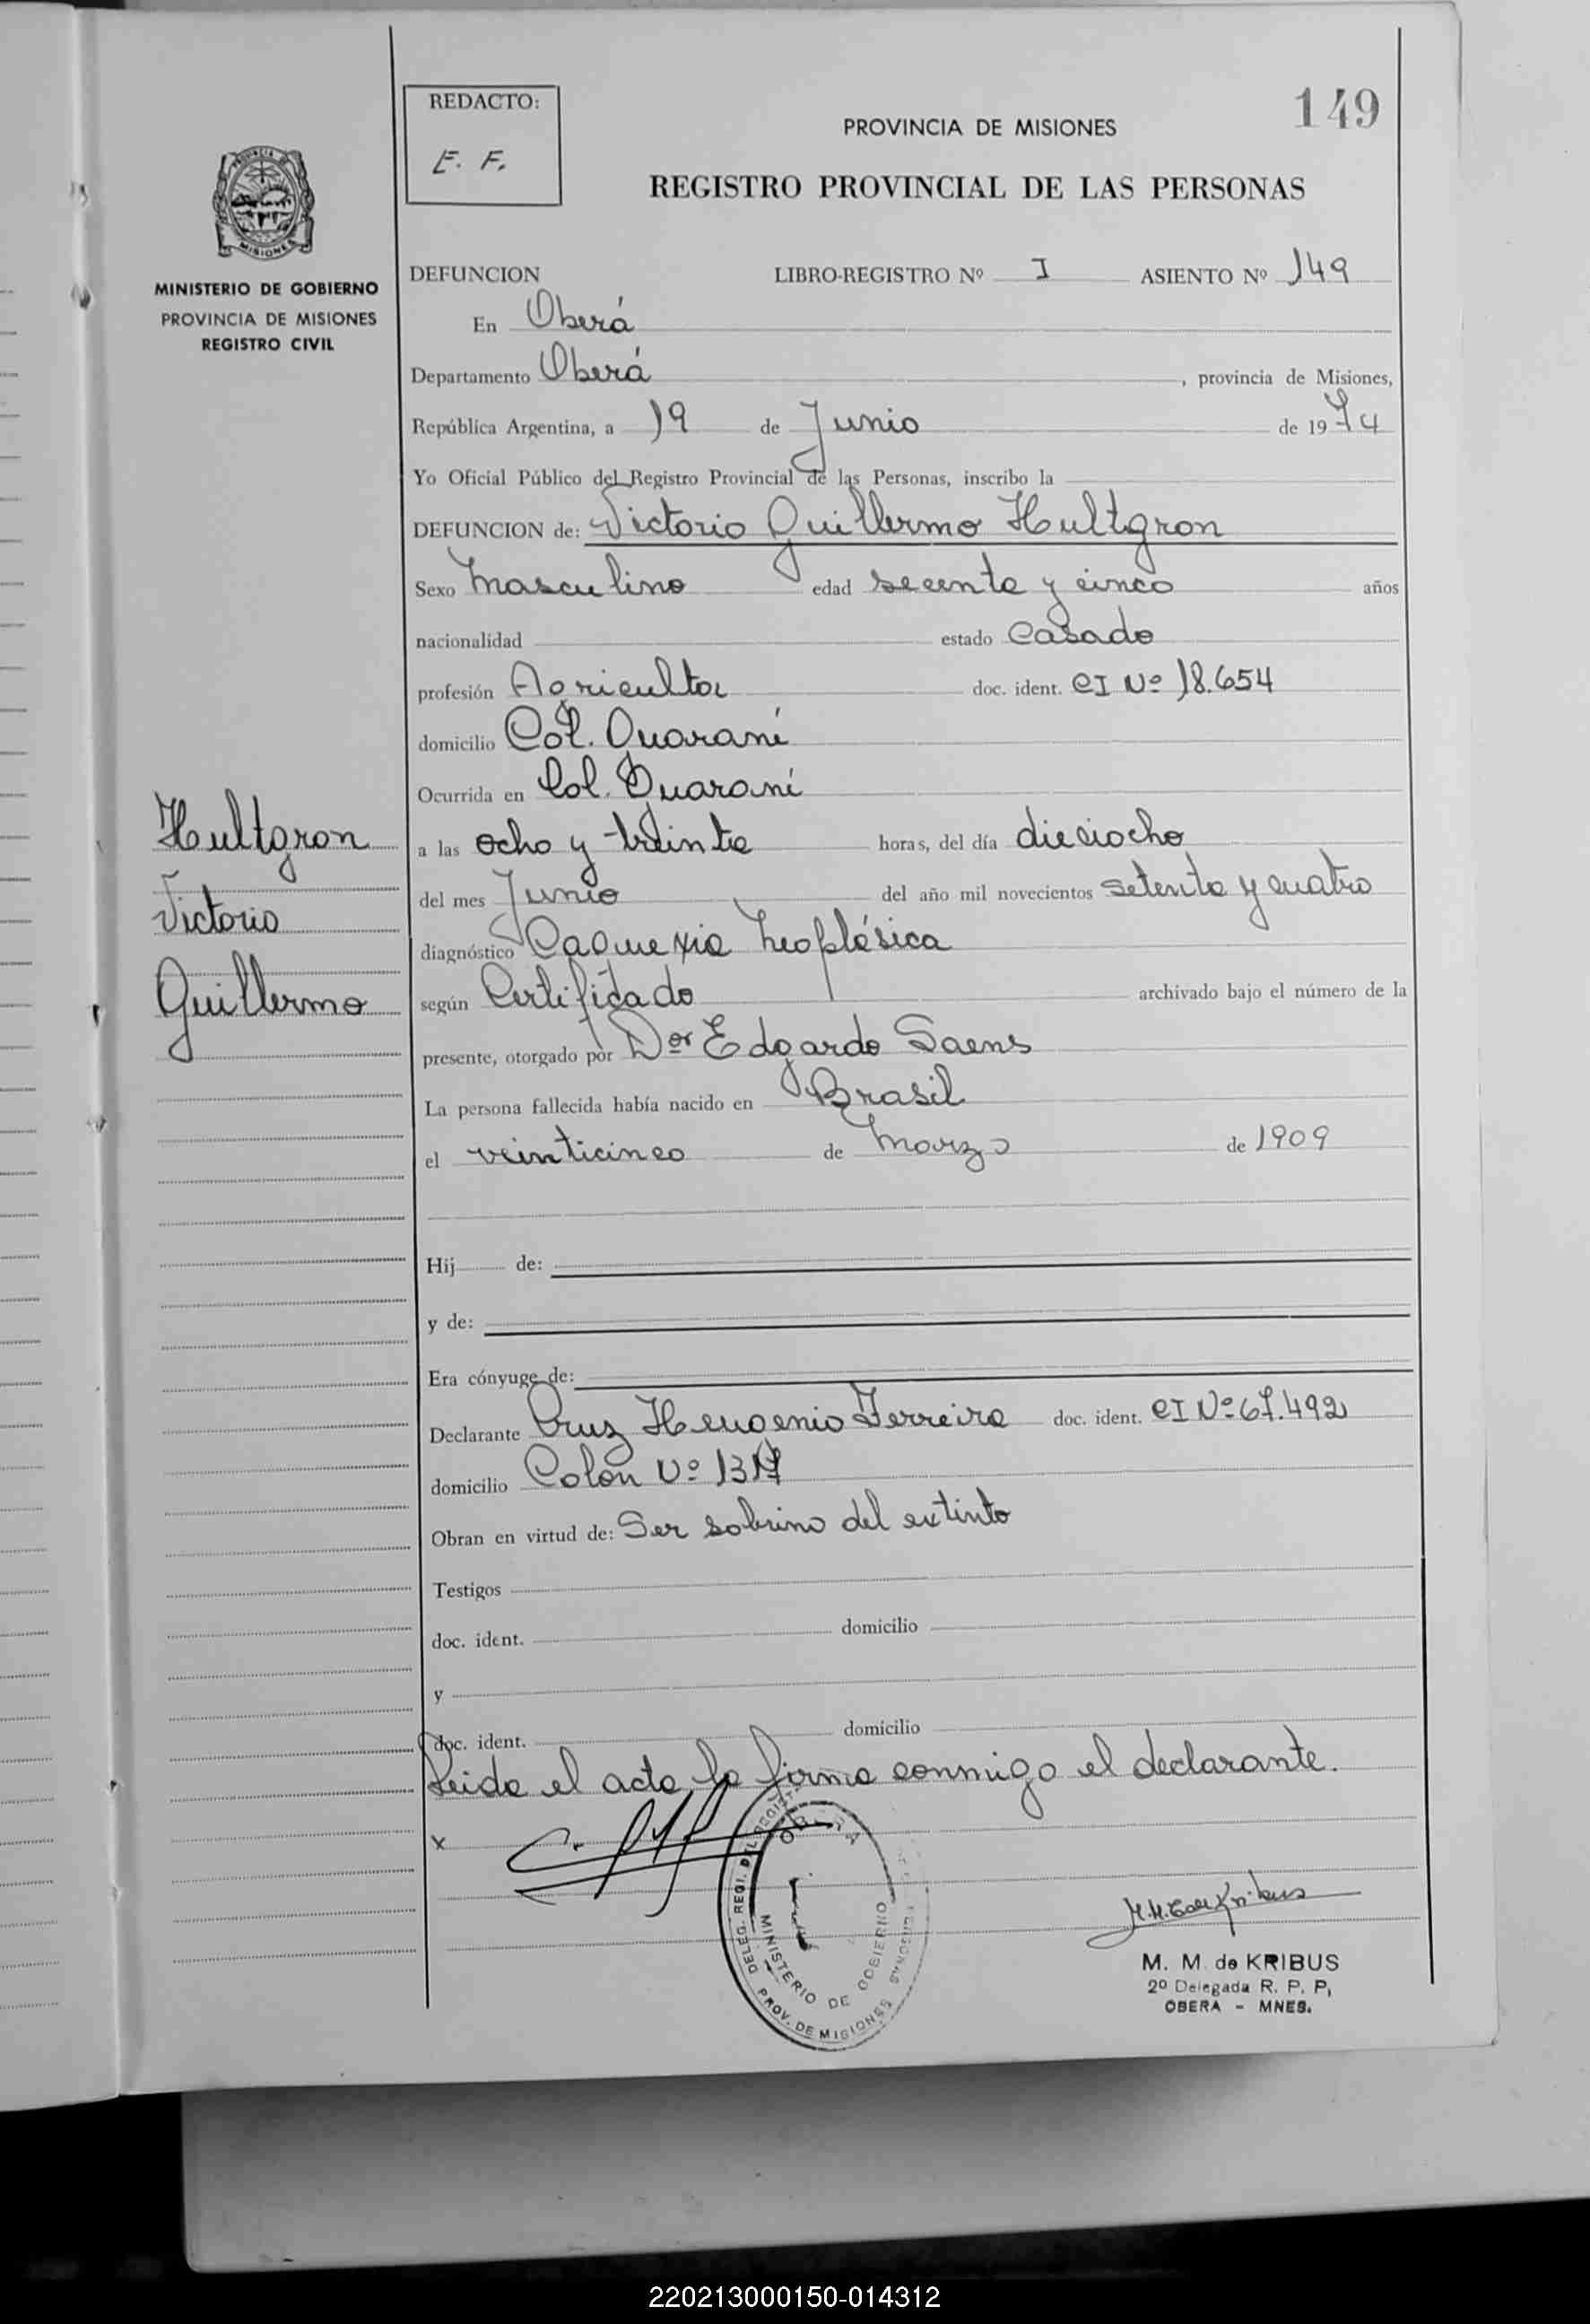 149
REDACTO:
E. F.
PROVINCIA DE MISIONES
REGISTRO PROVINCIAL DE LAS PERSONAS
MISIONES
MINISTERIO DE GOBIERNO
PROVINCIA DE MISIONES
REGISTRO CIVIL
DEFUNCION LIBRO-REGISTRO Nº I ASIENTO Nº 149
En Oberá
Departamento Oberá , provincia de Misiones,
República Argentina, a 19 de Junio de 1974
Yo Oficial Público del Registro Provincial de las Personas, inscribo la
DEFUNCION de: Victorio Guillermo Hultgron
Sexo Masculino edad secenta y cinco años
nacionalidad estado Casado
profesión Agricultor doc. ident. CI Nº 18.654
domicilio Col. Guaraní
Ocurrida en Col. Guaraní
a las ocho y treinta horas, del día dieciocho
del mes Junio del año mil novecientos setenta y cuatro
diagnóstico Caquexia Neoplásica
según Certificado archivado bajo el número de la
presente, otorgado por Dor Edgardo Saens
La persona fallecida había nacido en Brasil
el veinticinco de Marzo de 1909
Hij de:
y de:
Era cónyuge de:
Declarante Cruz Heugenio Ferreira doc. ident. CI Nº 67.492
domicilio Colón Nº
Obran en virtud de: Ser sobrino del extinto
Testigos
doc. ident. domicilio
y
doc. ident. domicilio
Leida el acta la firma conmigo el declarante.
x
Hultgron
Victorio
Guillermo
DELEG. REGI. DEL REGIST.
OBERA
MINISTERIO DE GOBIERNO
PROV. DE MISIONES
M. M. de KRIBUS
2º Delegada R. P. P,
OBERA - MNES.
220213000150-014312